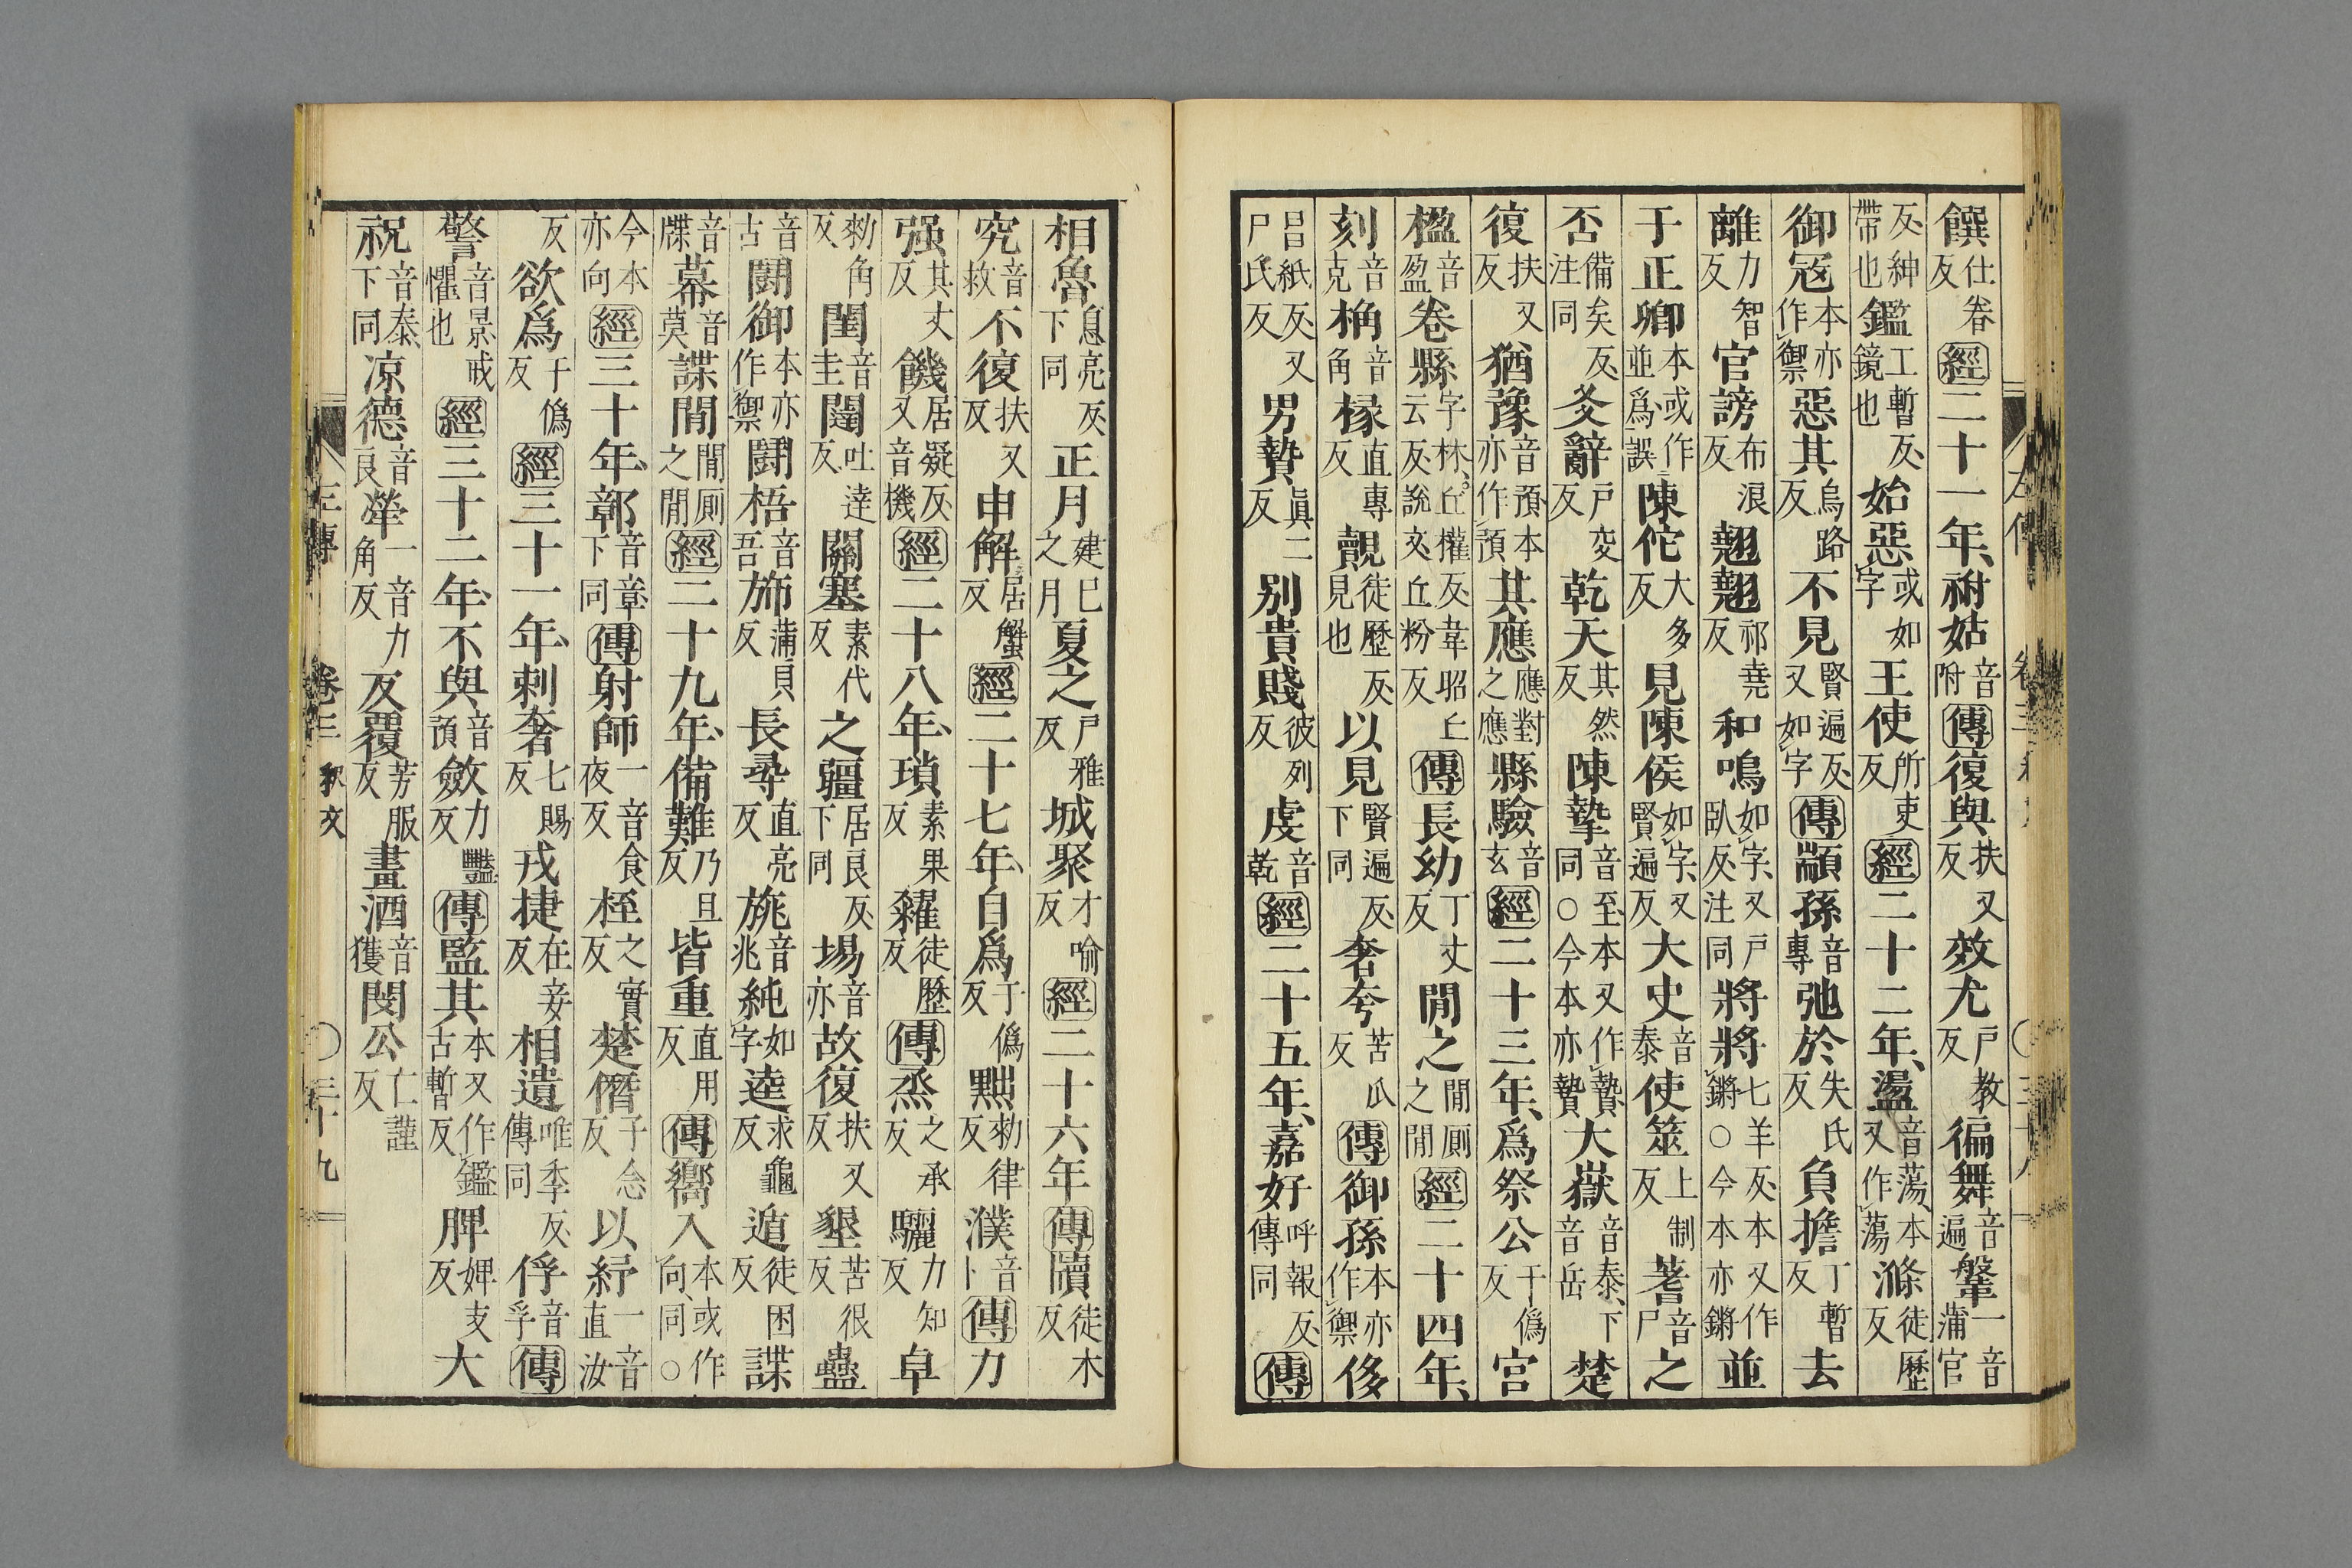 饌仕眷反經二十一年、祔姑音附傳復與扶又反效尤戸教反徧舞音遍鞶一音蒲官
反、紳帶也鑑工暫反、鏡也始惡或如字王使所吏反經二十二年、盪音蕩、本又作蕩滌徒歷反
御冦本亦作禦惡其烏路反不見賢遍反、又如字傳顓孫音專弛於失氏反負擔丁暫反去
離力智反官謗布浪反翹翹祁堯反和鳴如字、又戸臥反、注同將將七羊反、本又作鏘○今本亦鏘並
于正卿本或作並爲、誤陳佗大多反見陳侯如字、又賢遍反大史音泰使筮上制反蓍音尸之
否備矣反、注同爻辭戸交反乾天其然反陳摯音至、本又作贄同○今本亦贄大嶽音泰、下音岳楚
復扶又反猶豫音預本亦作預其應應對之應縣驗音玄經二十三年、爲祭公于僞反宫
楹音盈卷縣字林、丘權反、韋昭丘云反、說文、丘粉反傳長幼丁丈反閒之閒厠之閒經二十四年、
刻音克桷音角椽直專反覿徒歷反、見也以見賢遍反、下同奢夸苦瓜反傳御孫本亦作禦侈
昌紙反、又尸氏反男贄眞二反别貴賤彼列反虔音乾經二十五年、嘉好呼報反、傳同傳
相魯息亮反下同正月建巳之月夏之戸雅反城聚才喻反經二十六年傳牘徒木反
究音救不復扶又反申解居蟹反經二十七年、自爲于僞反黜勑律反濮音卜傳力
强其丈反饑居疑反、又音機經二十八年、瑣素果反糴徒歷反傳烝之承反驪力知反卓
勑角反閨音圭闥吐達反關塞素代反之疆居良反、下同埸音亦故復扶又反墾苦很反蠱
音古鬪御本亦作禦鬪梧音吾斾蒲貝反長尋直亮反旐音兆純如字逵求龜反遁徒困反諜
音牒幕音莫諜閒閒厠之閒經二十九年、備難乃旦反皆重直用反傳嚮入本或作向、同○
今本亦向經三十年、鄣音章下同傳射師一音食夜反桎之實反楚僭子念反以紓一音直汝
反欲爲于僞反經三十一年、刺奢七賜反戎捷在妾反相遺唯季反、傳同俘音孚傳
警音景、戒懼也經三十二年、不與音預斂力豔反傳監其本又作鑑、古暫反脾婢支反大
祝音泰、下同凉德音良犖一音力角反反覆芳服反晝酒音獲閔公仁謹反
左傳 卷三 釈文 ○ 三十九